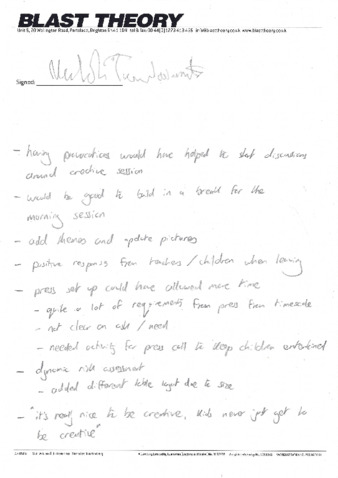 BLAST THEORY
Unit 5, 20 Wellington Road, Portslade, Brighton BN41 1DN
Signed:
- having provocations would have helped to start discussions
around creative session
- would be good to build in a break for the
morning session
- add themes and update pictures
- positive response from teachers / children when leaving
- press set up could have allowed more time
- quite a lot of requirements from press from timescale
- not clear on ask / need
- needed activity for press call to keep children entertained
- dynamic risk assessment
- added different table layout due to size
- "it's really nice to be creative, kids never just get to
be creative"